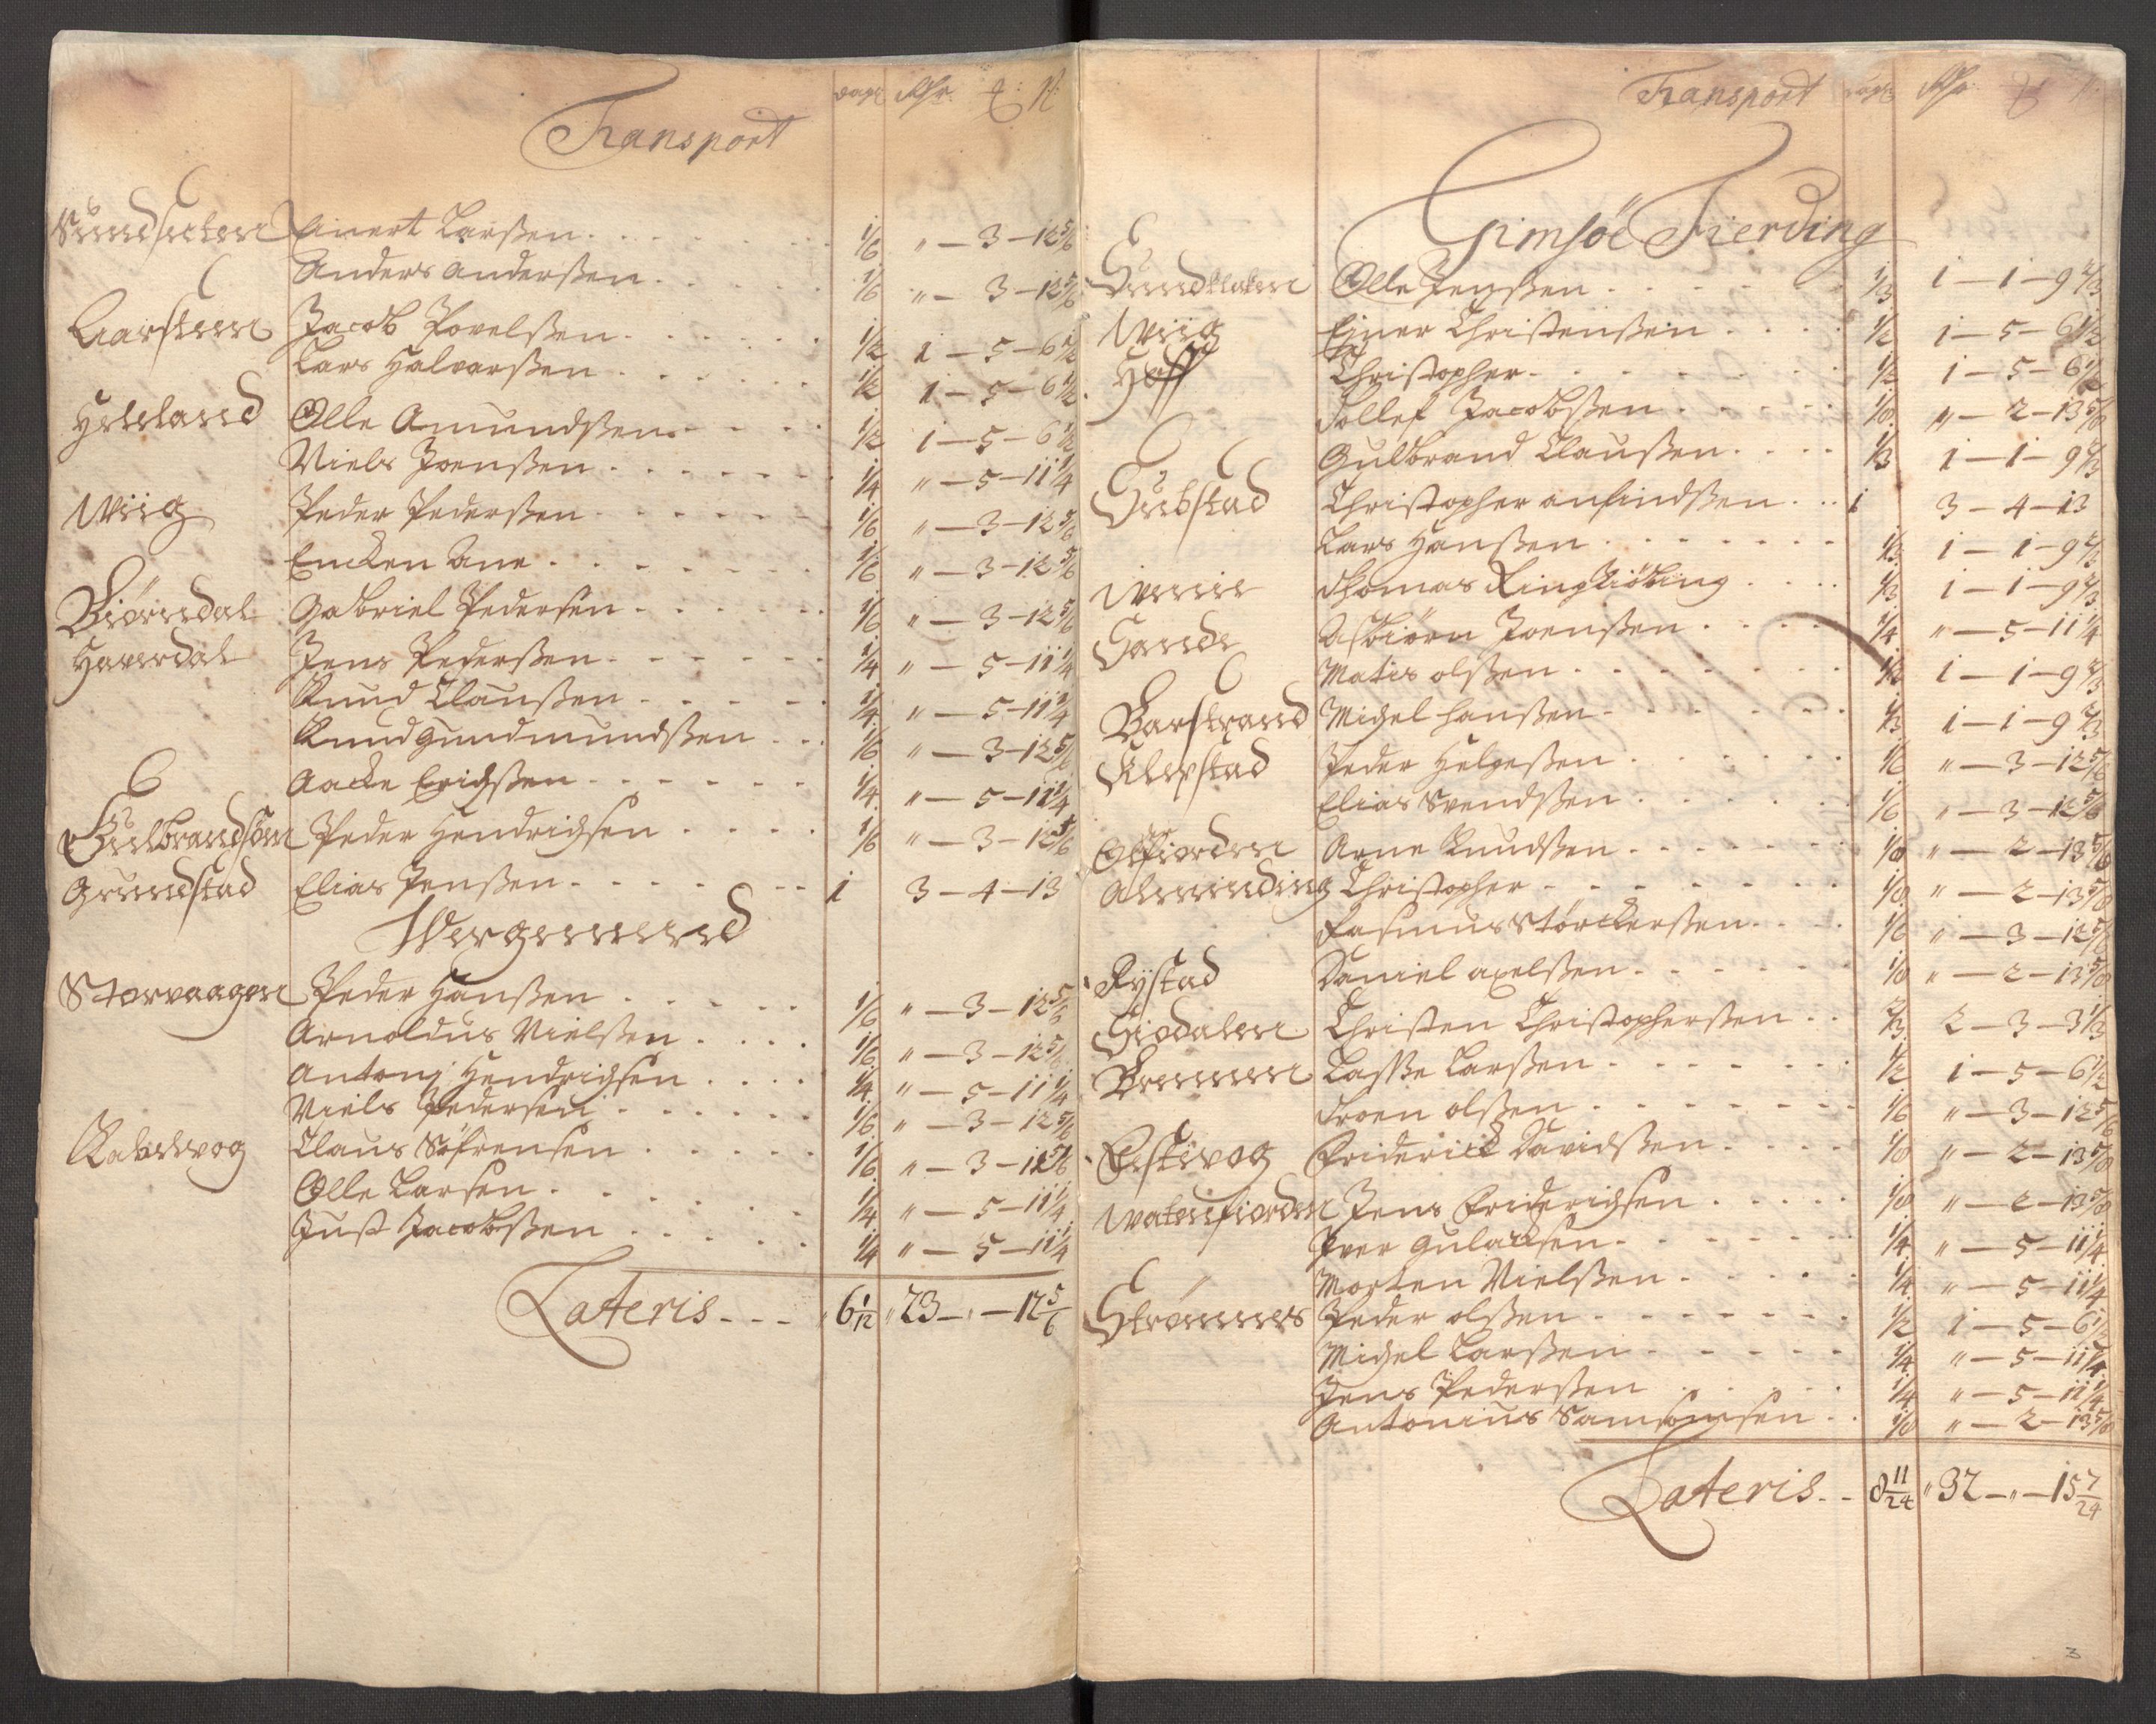 Transport
Sundsleten Einert Larßen 1/6 " — 3 — 12 5/6
Anders Anderßen 1/6 " — 3 — 12 5/6
Jacob Povelßen 1/2 1 — 5 — 6 1/2
Lars Halvorßen 1/2 1 — 5 — 6 1/2
Helland Olle Amundßen 1/2 1 — 5 — 6 1/2
Niels Joenßen 1/4 " — 5 — 11 1/4
Wiig Peder Pederßen 1/6 " — 3 — 12 5/6
Encken Ane 1/6 " — 3 — 12 5/6
Biörndal Gabriel Pedersen 1/6 " — 3 — 12 5/6
Haverdal Jens Pederßen 1/4 " — 5 — 11 1/4
Knud Claußen 1/4 " — 5 — 11 1/4
Knud Gundmundßen 1/6 " — 3 — 12 5/6
Aacke Erichßen 1/4 " — 5 — 11 1/4
Gulbrandsöen Peder Hendrichsen 1/6 " — 3 — 12 5/6
Grundstad Elias Jenßen 1 3 — 4 — 13
Storvaagen Peder Hanßen 1/6 " — 3 — 12 5/6
Arnoldus Nielßen 1/6 " — 3 — 12 5/6
Antonj Hendrichsen 1/4 " — 5 — 11 1/4
Niels Pedersen 1/6 " — 3 — 12 5/6
Kabelvog Claus Söfrensen 1/6 " — 3 — 12 5/6
Olle Larsen 1/4 " — 5 — 11 1/4
Just Jacobßen 1/4 " — 5 — 11 1/4
Lateris 6 1/12 " 23 — " — 12 5/6
Transport
Gimsöe Fierding
Sundklaken Olle Jenßen 1/3 1 — 1 — 9 2/3
Wiig Ejner Christenßen 1/2 1 — 5 — 6 1/2
Hoff Christopher 1/2 1 — 5 — 6 1/2
Tollef Jacobßen 1/8 " — 2 — 13 5/8
Gulbrand Claußen 1/3 1 — 1 — 9 2/3
Christopher Anfindßen 1 3 — 4 — 13
Lars Hanßen 1/3 1 — 1 — 9 2/3
Thomas Ringkiöbing 1/3 1 — 1 — 9 2/3
Sande Asbiörn Joenßen 1/4 " — 5 — 11 1/4
Matis olßen 1 — 1 — 9 2/3
Barstrand Michel Hanßen 1/3 1 — 1 — 9 2/3
Klepstad Peder Helgeßen 1/6 " — 3 — 12 5/6
Elias Svendßen 1/6 " — 3 — 12 5/6
Arne Knudßen 1/8 " — 2 — 13 5/8
Christopher 1/8 " — 2 — 13 5/8
Rasmus Störckerßen 1/6 " — 3 — 12 5/6
Rystad Daniel axelßen 1/8 " — 2 — 13 5/8
Giodalen Christen Christopherßen 2/3 2 — 3 — 3 1/3
Laße Larßen 1/2 1 — 5 — 6 1/2
Troen olßen 1/6 " — 3 — 12 5/6
Friderich Davidßen 1/8 " — 2 — 13 5/8
Watenfiorden Jens Friderichsen 1/8 " — 2 — 13 5/8
Iver Gulachsen 1/4 " — 5 — 11 1/4
Morten Nielßen 1/4 " — 5 — 11 1/4
Strømnes Peder olßen 1/2 1 — 5 — 6 1/2
Michel Larßen 1/4 " — 5 — 11 1/4
Jens Pederßen 1/4 " — 5 — 11 1/4
Antonius Samsonsen 1/8 " — 2 — 13 5/8
Lateris 8 11/24 " 32 — " — 15 7/24
3